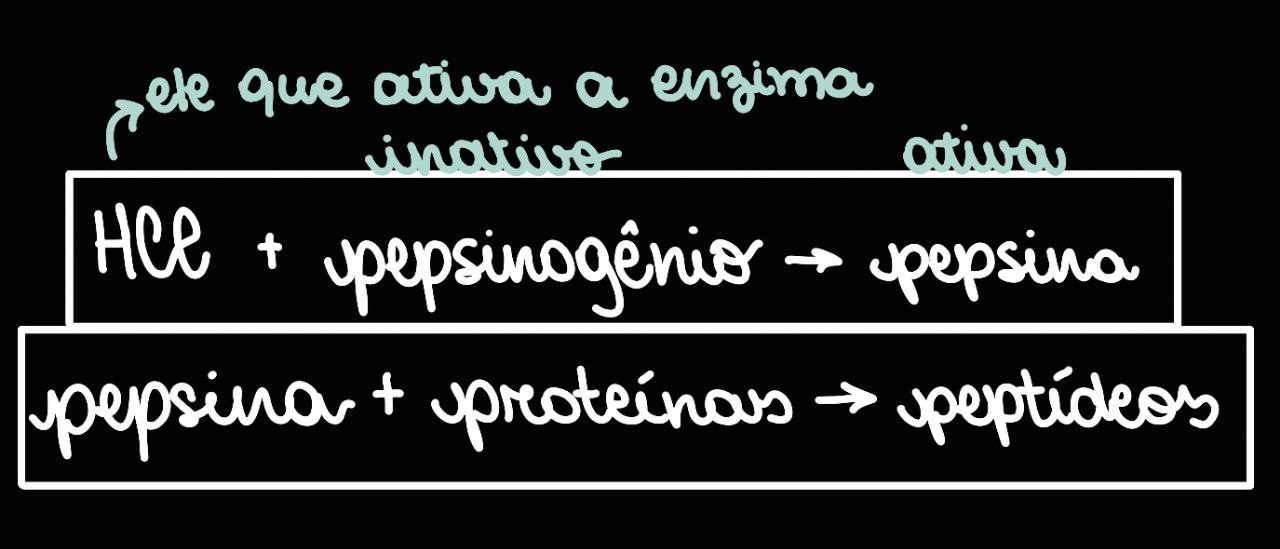 ele que ativa a enzima
inativo ativa
HCl + pepsinogênio → pepsina
pepsina + proteínas → peptídeos